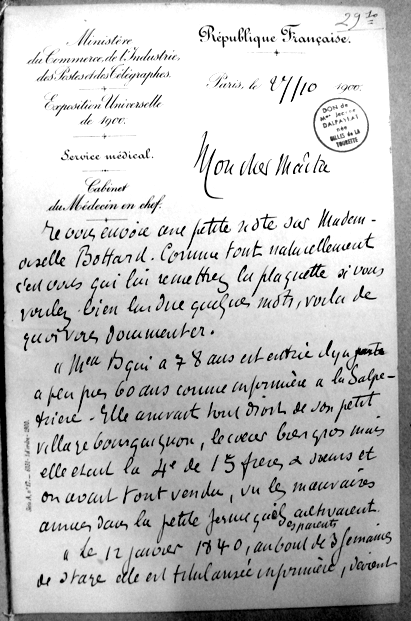 29 10
Ministère
du Commerce, de l'Industrie,
des Postes et des Télégraphes.
Exposition Universelle
de 1900.
Service médical.
Cabinet
du Médecin en chef.
République Française.
Paris, le 27/10 1900.
DON de
Mme
DALPAYRAT
née
GILLES DE LA
TOURETTE
Mon cher Maître
Je vous envoie une petite note sur Madem-
oiselle Bottard. Comme tout naturellement
c'est vous qui lui remettrez la plaquette si vous
voulez bien lui dire quelques mots, voilà de
quoi vous documenter.
" Melle B qui a 78 ans est entrée il y a
a peu près 60 ans comme infirmière à la Salpê-
trière - Elle arrivait tout droit de son petit
village bourguignon, le cœur bien gros mais
elle était la 4e de 15 frères & sœurs et
on avait tout vendu, vu les mauvaises
années dans la petite ferme que cultivaient
ses parents.
" Le 12 janvier 1840, au bout de 3 semaines
de stage elle est titularisée infirmière, devient